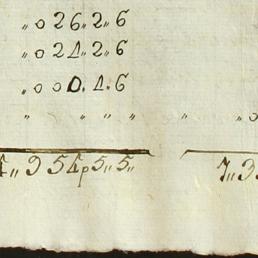 „ 0 26 „ 2 „ 6
„ 0 21 „ 2 „ 6
„ 0 0 0 . 1 . 6
„ „ „ „ „
4 „ 9 54 p 5 „ 5 „ 7 „ 9